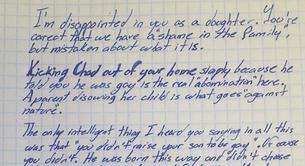 I'm disappointed in you as a daughter. You're
correct that we have a "shame in the family",
but mistaken about what it is.
Kicking Chad out of your home simply because he
told you he was gay is the real "abomination" here.
A parent disowning her child is what goes against
nature.
The only intelligent thing I heard you saying in all this
was that "you didn't raise your son to be gay". Of course
you didn't. He was born this way and didn't